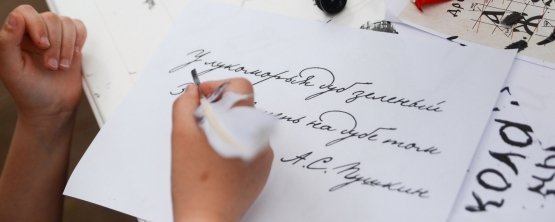 У лукоморья дуб зеленый
цепь на дубе том
А.С. Пушкин
кола